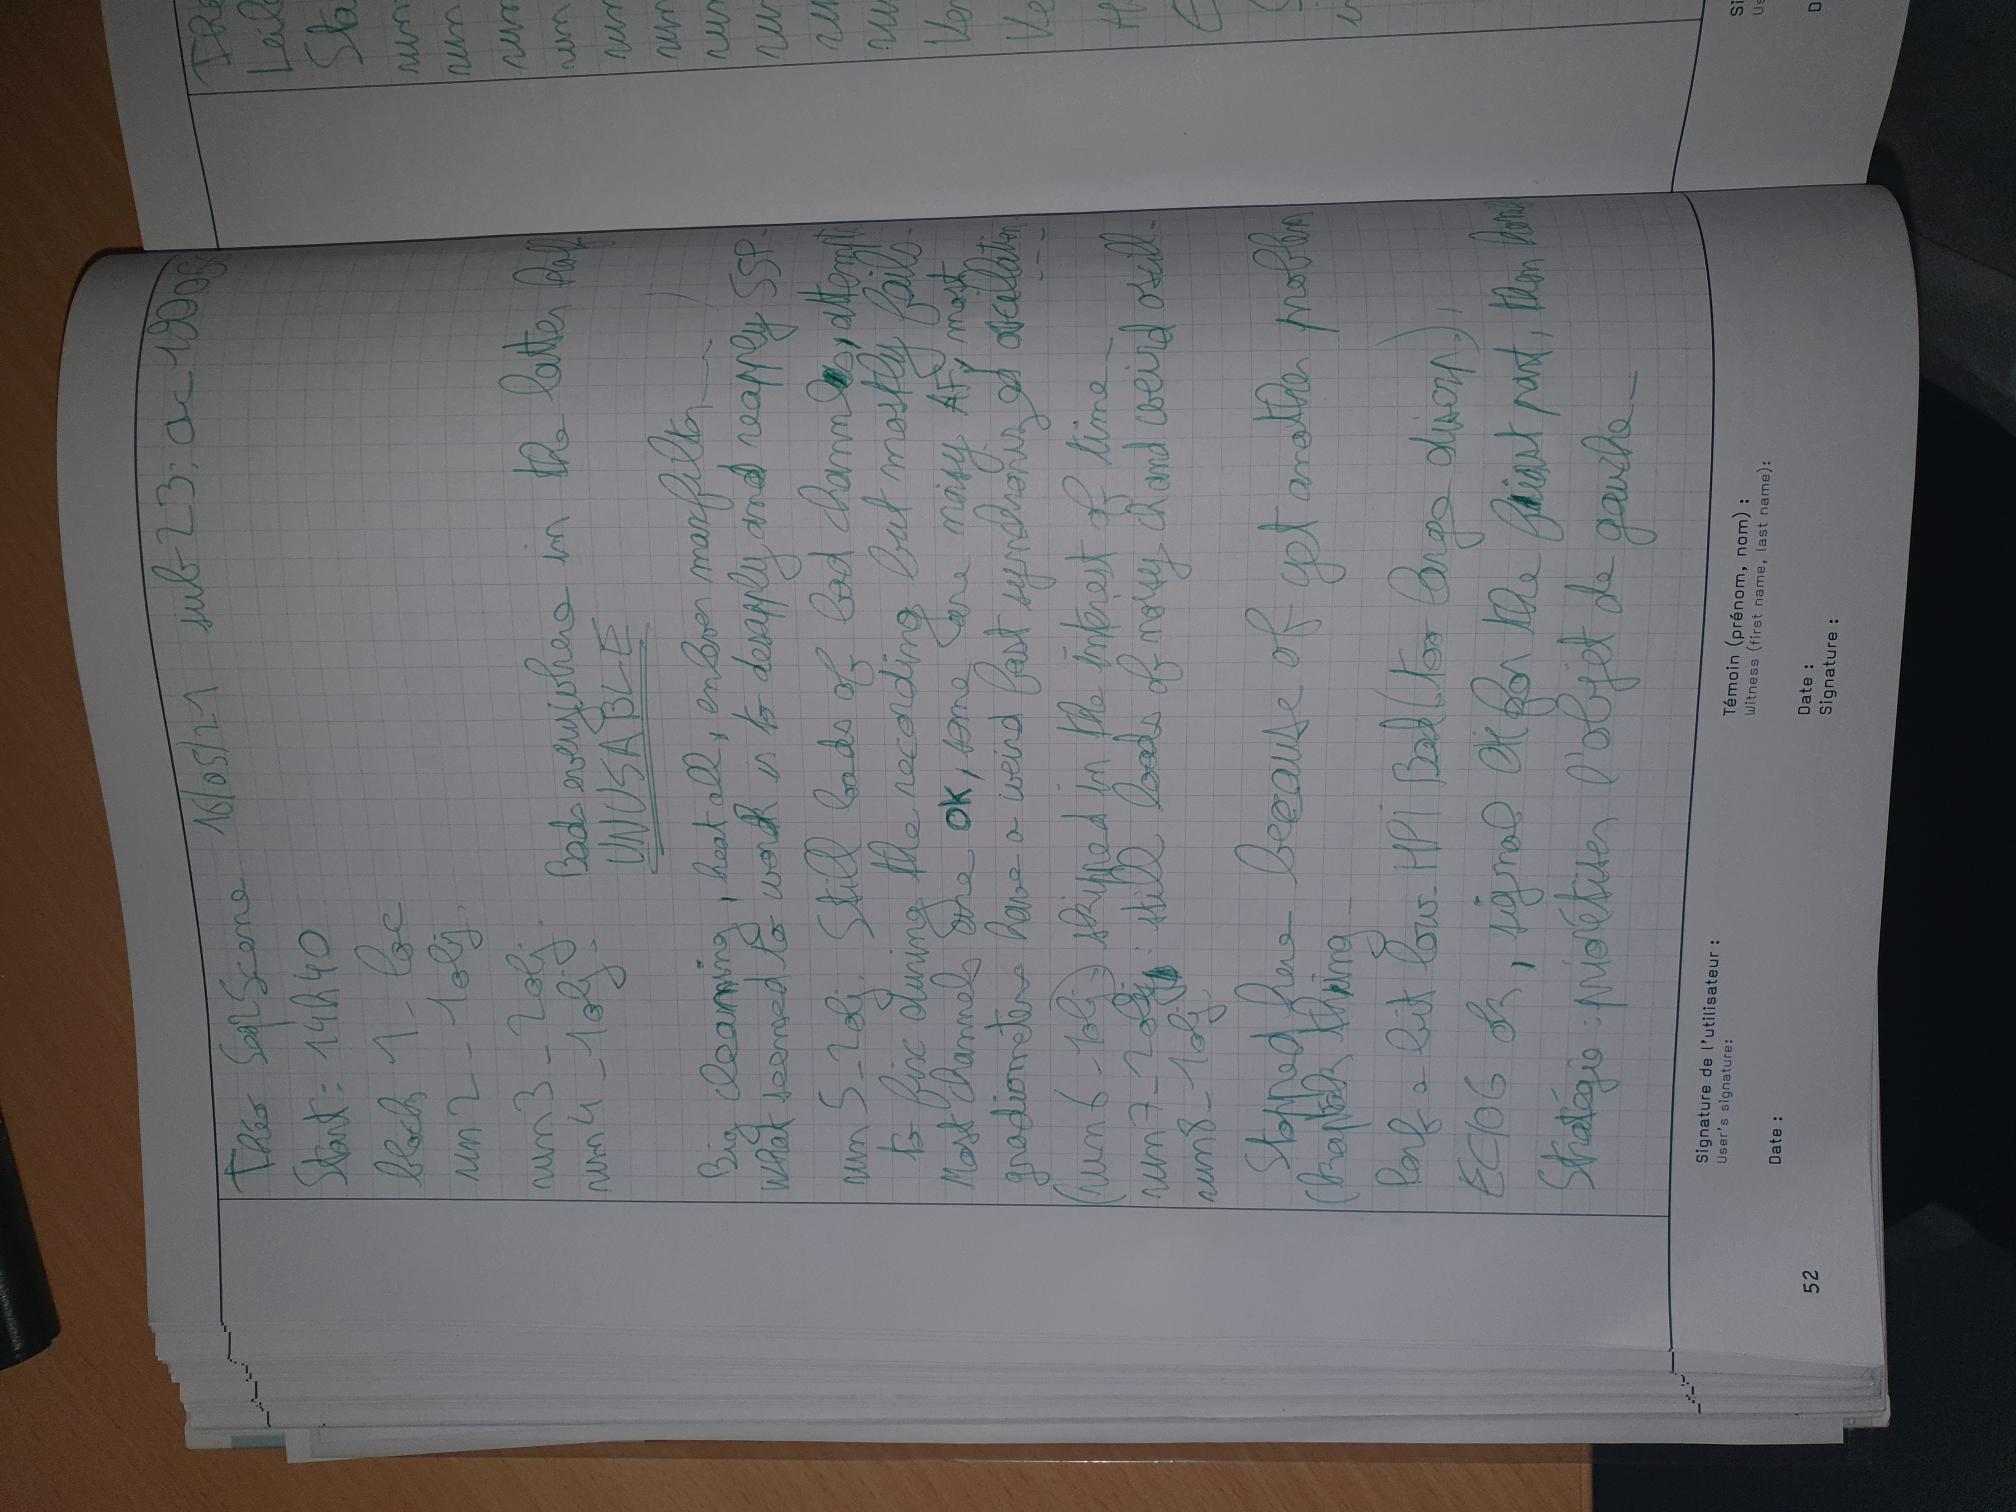 Théo Seq2Scene 16/05/21 sub 23: ac 19005
Start: 14h40
block 1 - loc
run 2 - 1obj.
run 3 - 2obj.
run 4 - 1obj. Bads everywhere in the latter half
UNUSABLE
Big cleaning, heat all, enlever maxfilter
What seemed to work is to desapply and reapply SSP.
run 5 - 2obj. Still loads of bad channels, attempts
to fix during the recording but mostly fails.
Most channels are OK, some are noisy AF, most
gradiometers have a weird fast synchronized oscillation
(run 6 - 1obj) skipped in the interest of time
run 7 - 2obj: still loads of noisy ch and weird oscill.
run 8 - 1obj.
Stopped here because of yet another problem
thing
Perf a bit low. HPI Bad (too large discrp),
ECOG ok, signal OK for the first part, then
Stratégie: priorétiser l'objet de gauche
Signature de l'utilisateur :
User's signature:
Témoin (prénom, nom) :
Witness (first name, last name):
Date :
Date :
Signature :
52
Leil
Sta
run
run
run
run
run
run